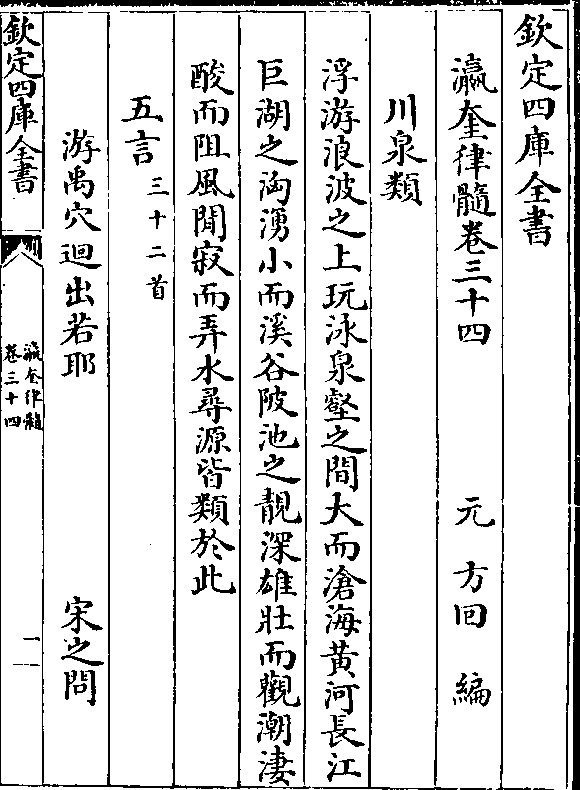 欽定四庫全書
瀛奎律髓卷三十四 元 方回 編
川泉類
浮游浪波之上玩泳泉壑之間大而滄海黄河長江
巨湖之洶湧小而溪谷陂池之靚深雄壯而觀潮淒
酸而阻風閒寂而弄水尋源皆類於此
五言三十二首
游禹穴迴出若耶 宋之問
欽定四庫全書
瀛奎律髓
卷三十四
一